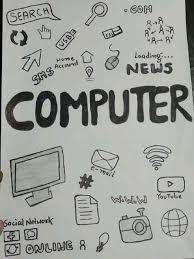 SEARCH
.COM
USB
R R R
R R
Loading....
NEWS
Home
Account
SMS
COMPUTER
e-mail
YouTube
WWW
Social Network
ONLINE